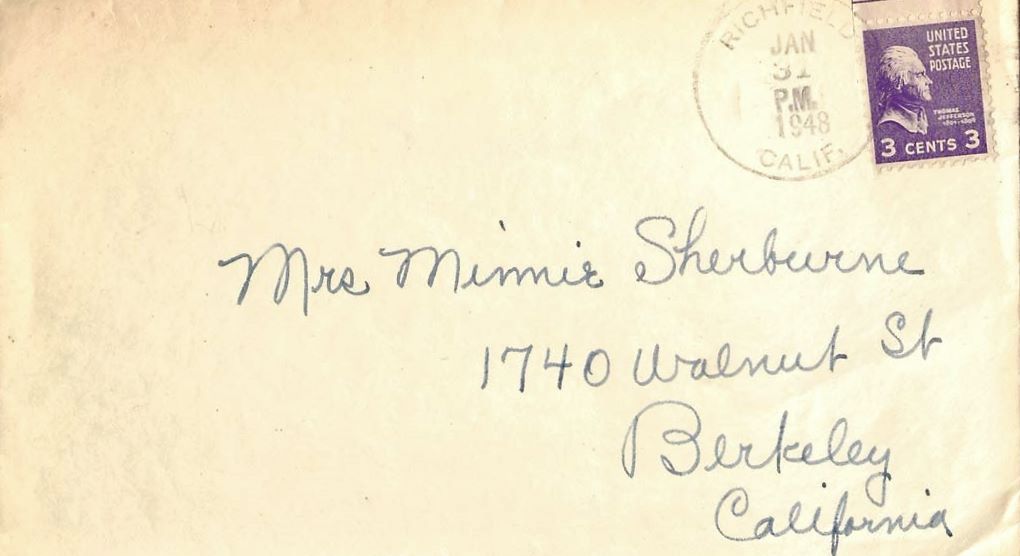 RICHFIELD
JAN
31
P.M.
1948
CALIF.
UNITED
STATES
POSTAGE
THOMAS
JEFFERSON
1801-1809
3 CENTS 3
Mrs Minnie Sherburne
1740 Walnut St
Berkeley
California